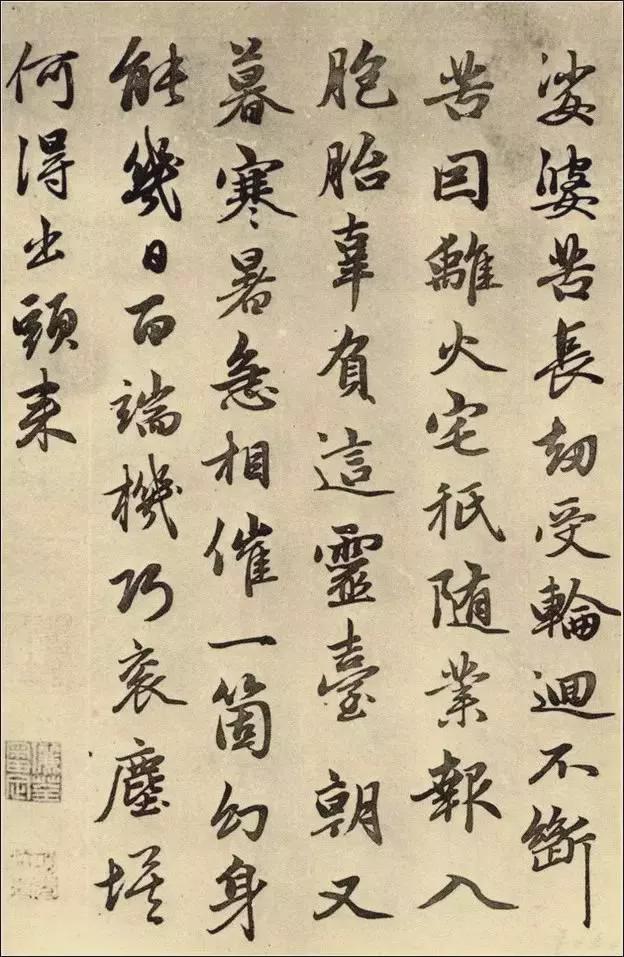 娑婆苦長劫受輪迴不斷
苦因離火宅秖随業報入
胞胎辜負這靈臺朝又
暮寒暑急相催一箇幻身
能幾日百端機巧衮塵埃
何得出頭來